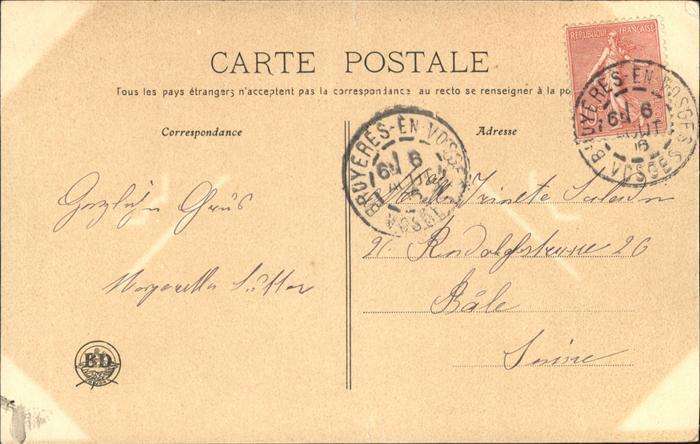 CARTE POSTALE
Tous les pays étrangers n'acceptent pas la correspondance au recto se renseigner à la po
Correspondance
Adresse
RÉPUBLIQUE FRANÇAISE
BRUYÈRES-EN-VOSGES
6
AOUT
VOSGES
BRUYÈRES-EN-VOSGES
6
VOSGES
Herzliche Grüs
Margaretha Sutter
26
Bâle
Suisse
BD